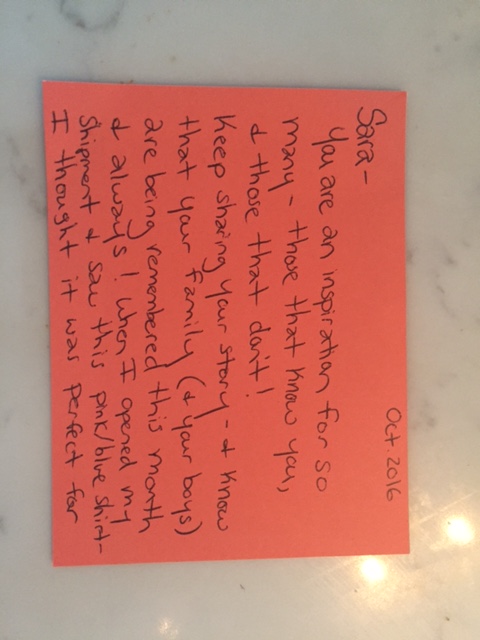 Oct. 2016
Sara-
You are an inspiration for so
many - those that know you,
& those that don't!
Keep sharing your story - & know
that your family (& your boys)
are being remembered this month
& always! When I opened my
shipment & saw this pink/blue shirt-
I thought it was perfect for